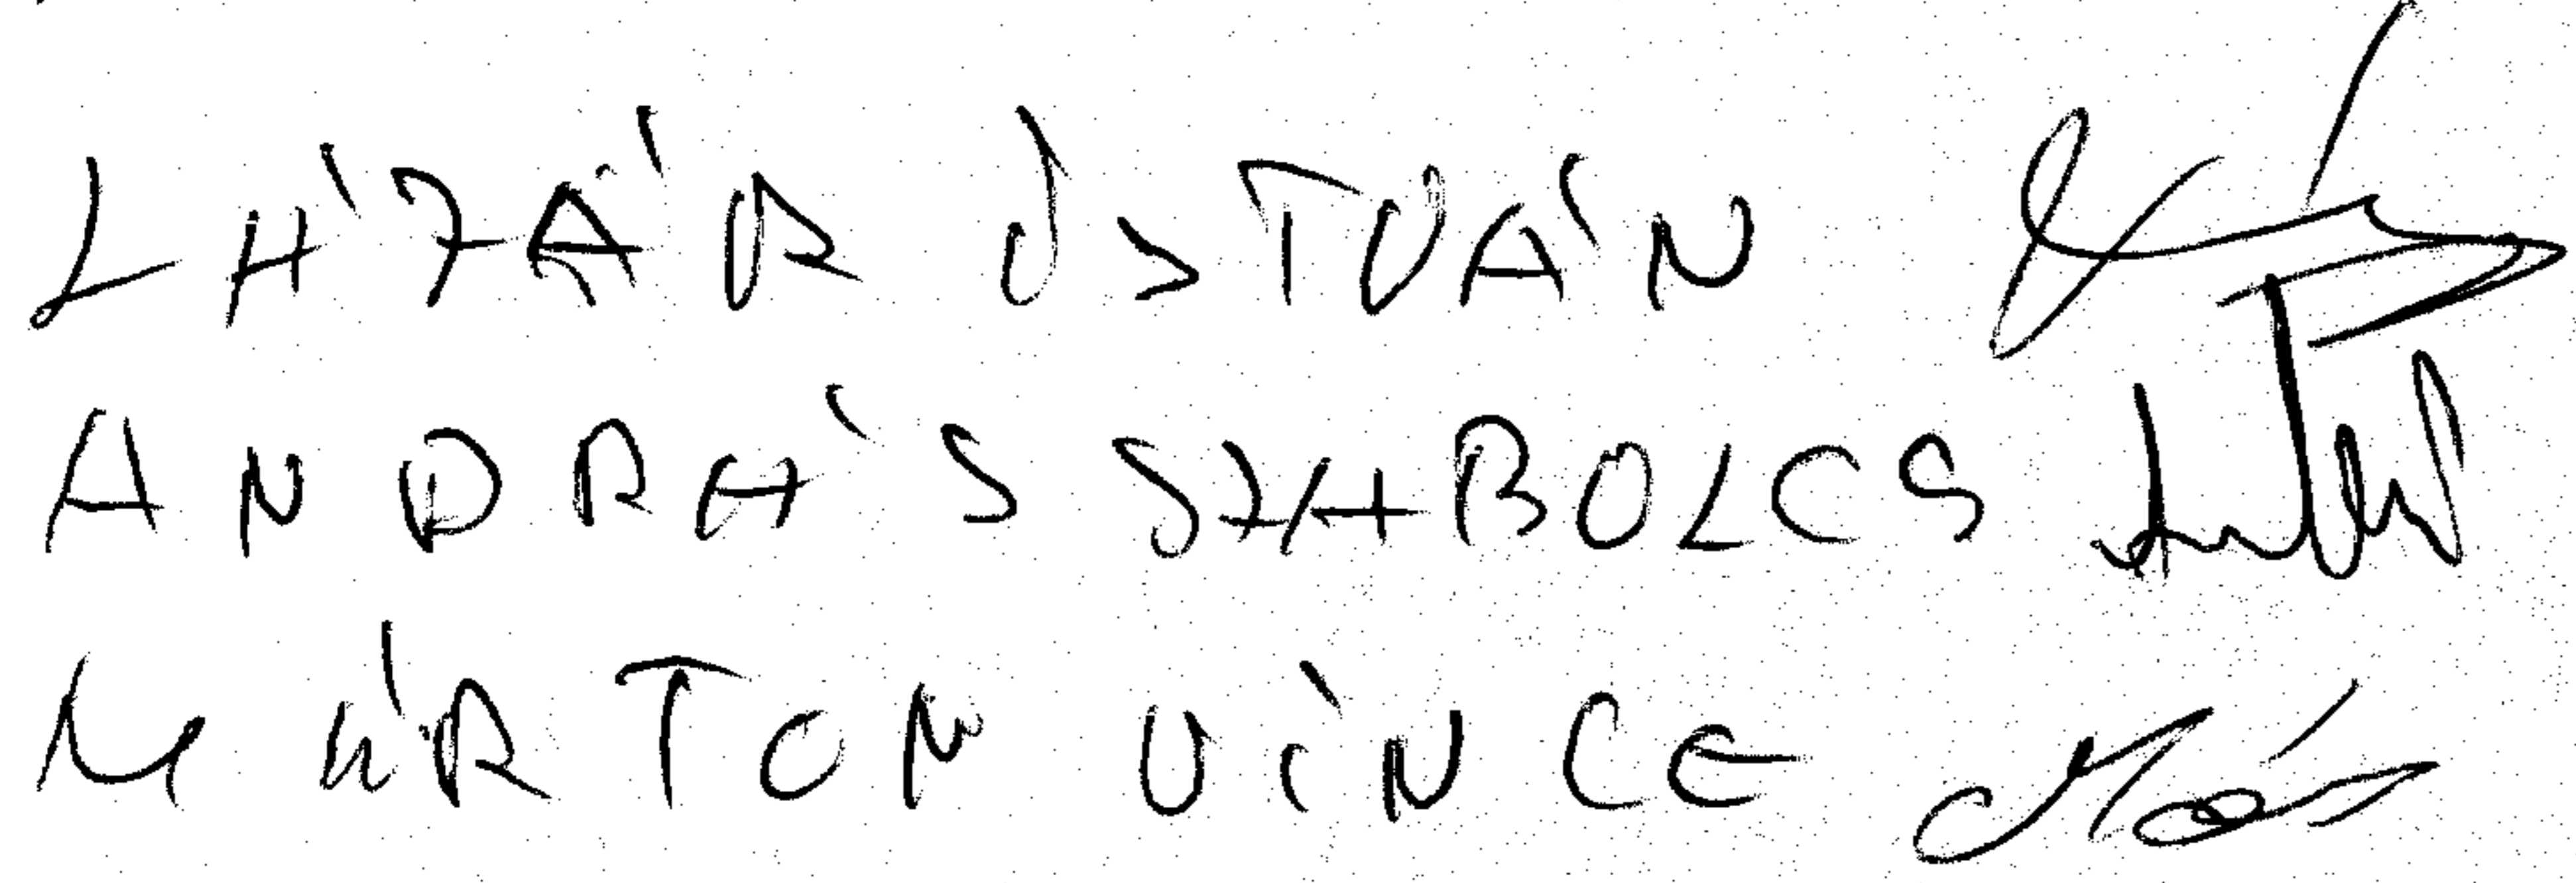 LÁZÁR ISTVÁN
ANDRÁS SZABOLCS
MÁRTON VINCE